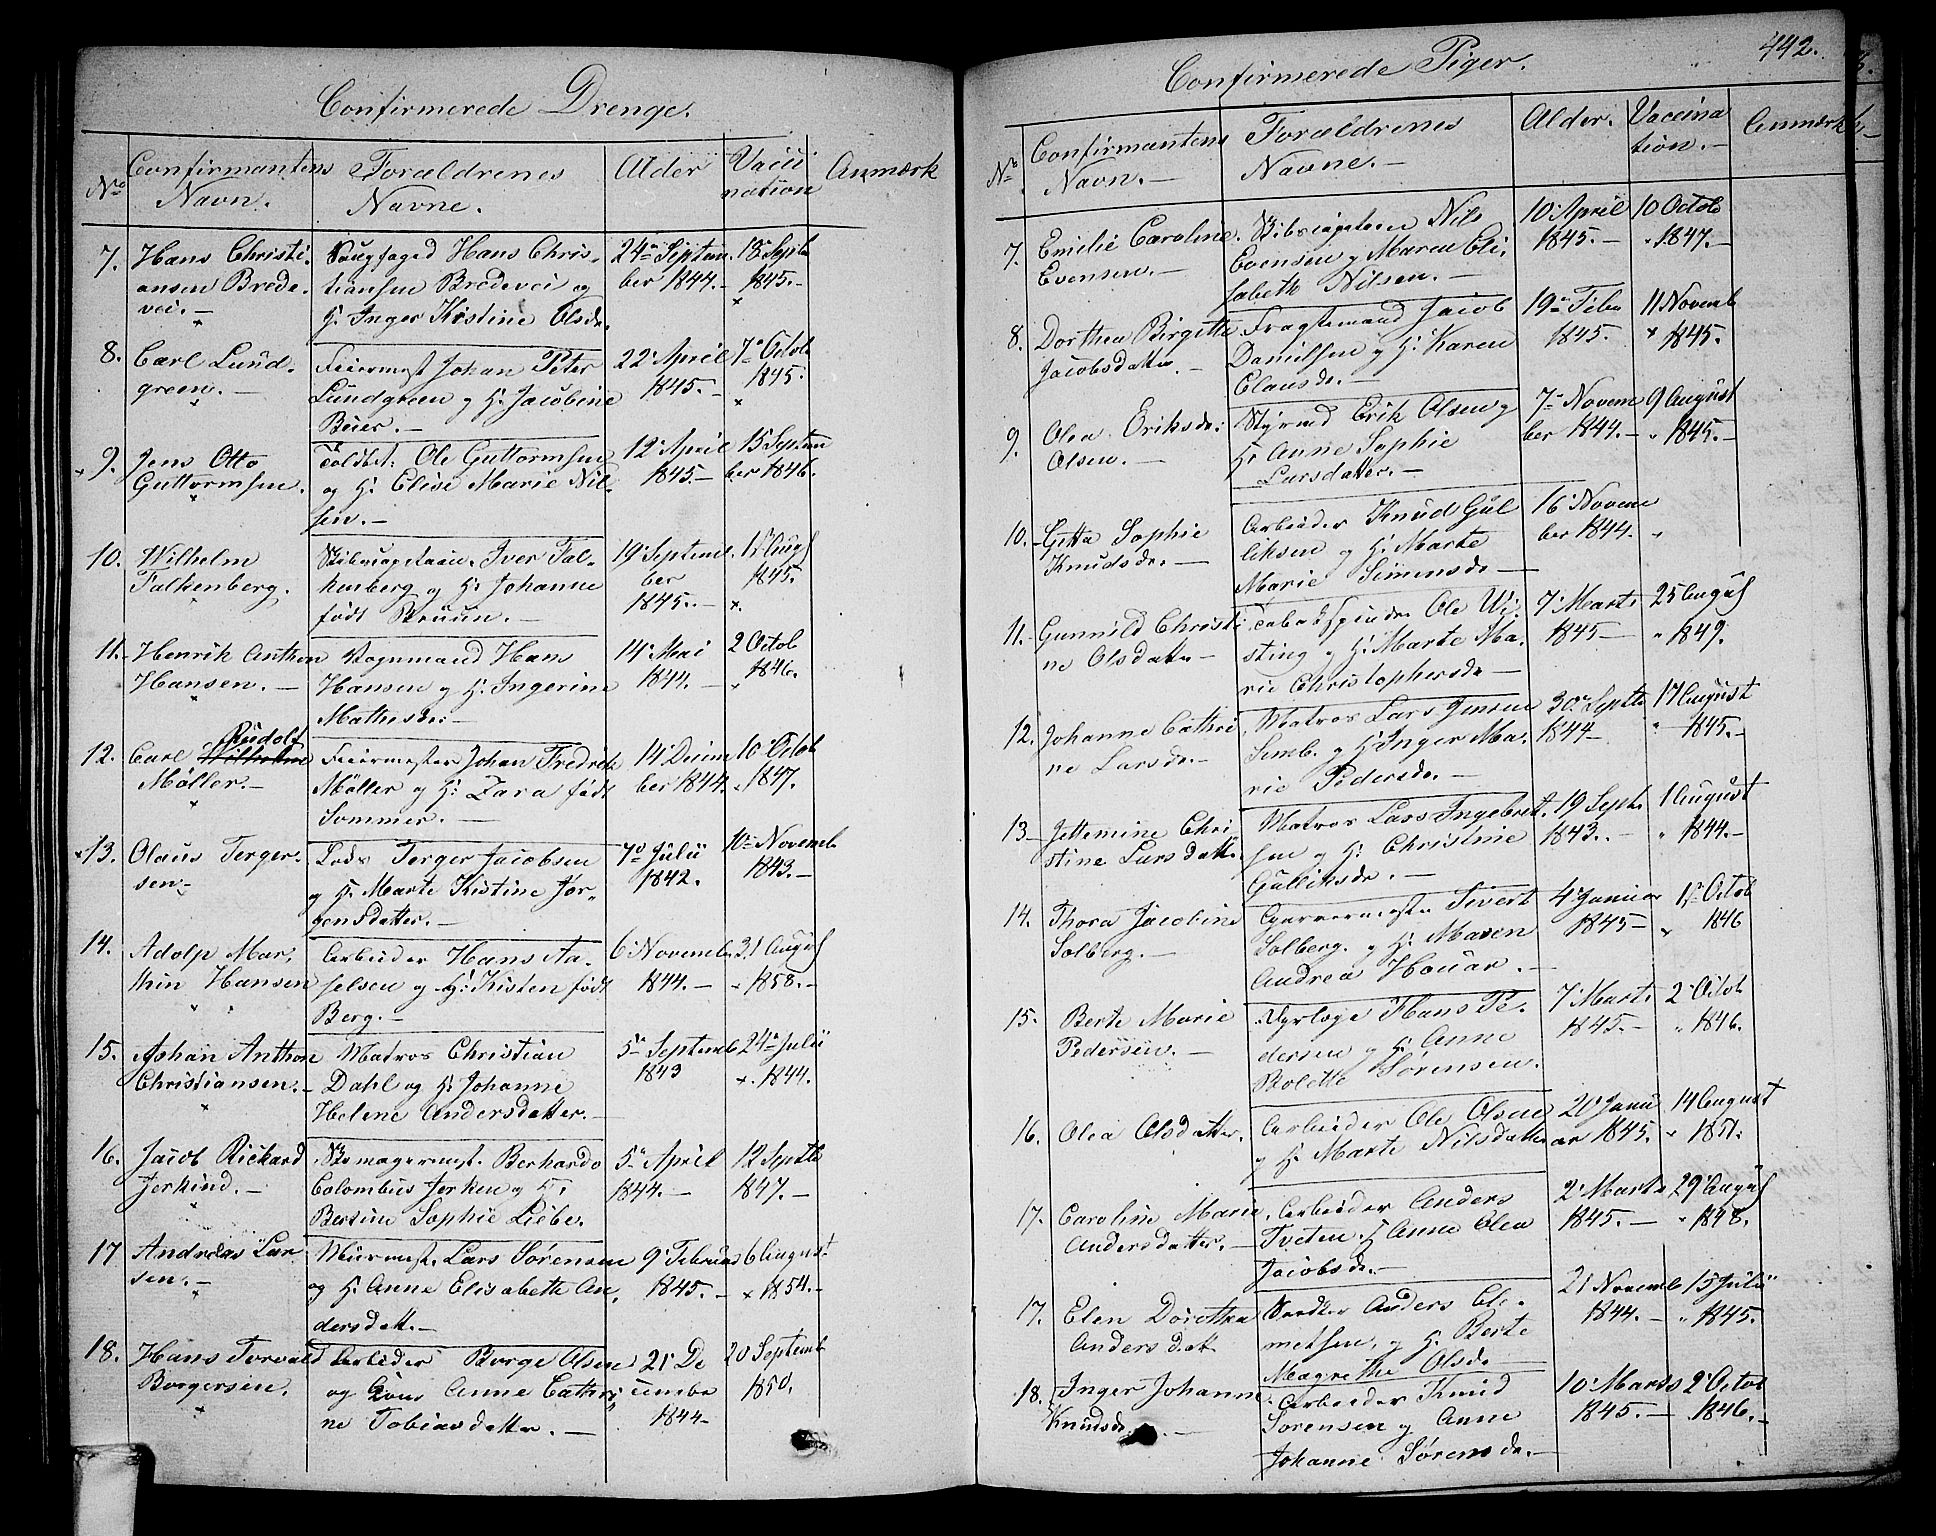 Confirmerede Drenge.
No
Confirmantens
Navn.
Forældrenes
Navne.
Alder
Vacci
nation
Anmærk
7. Hans Christi-
ansen Brede-
vei. —
Hans Chris-
tiansen Bredevei og
H: Inger Kistine Olsdr.
24de Septem
ber 1844. —
18 Septb
1845. —
8. Carl Lund-
green. —
Feiermest Johan Peter
Lundgreen og H: Jacobine
Beier. —
22 April
1845. —
7de Octob
1845.
9. Jens Otto
Guttormsen.
Toldbet. Ole Guttormsen
og H: Elise Marie Nil-
sen. —
12 April
1845. —
15 Septem
ber 1846.
10. Wilhelm
Falkenberg.
Iver Fal-
kenberg og H: Johanne
født Bruun. —
19 Septem
ber
1845. —
15 Aug
1845.
11. Henrik Anthon
Hansen. —
Vognmand Hans
Hansen og H: Ingerine
Mathisdr: —
14 Mai
1844. —
2 Octob
1846.
12. Carl Wilhelm Rudolf
Møller. —
Feiermester Johan Fredrik
Møller og H: Zara født
Sommer. —
14 Decem
ber 1844.
10 Octob
1847.
13. Olaus Terger-
sen —
Lods Terger Jacobsen
og H: Marte Kistine Jør-
gensdatter. —
7de Julii
1842.
10de Novemb
1843. —
14. Adolp Mar-
thin Hansen
Arbeider Hans Aa-
selsen og H: Kisten født
Berg. —
6 Novemb
1844. —
31 Augus
1858. —
15. Johan Anthon
Christiansen. —
Matros Christian
Dahl og H: Johanne
Helene Andersdatter. —
5te Septemb
1843
24de Julii
1844.
16. Jacob Rickard
Jerkind. —
Skomagermest. Berhardo
Colombus Jerken og H:
Bertine Sophie Liebe.
5te April
1844. —
12 Septb
1847. —
17 Andreas Lar
sen. —
Muurmest. Lars Sørensen
og H: Anne Elisabeth An-
dersdatt. —
9 Februar
1845. —
6 August
1854. —
18. Hans Torvald
Borgersen.
Arbeider Borge Olsen
og Anne Cathri
ne Tobiasdatter. —
21 De
cembe
1844 —
20 Septemb
1850.
442.
Confirmerede Piger.
No
Confirmantens
Navn. —
Forældrenes
Navne. —
Alder.
Vaccina
tion. —
Anmærk
7. Emilie Caroline
Evensen. —
Nils
Evensen og Maren Eli-
sabeth Nilsen. —
10 April
1845. —
10 Octob
1847. —
8. Dorthea Birgitte
Jacobsdatter. —
Fragtemand Jacob
Danielsen og H: Karen
Clausdr. —
19de Febr
1845.
11 Novemb
1845.
9. Olea Eriksdr:
Olsen. —
Styrmd Erik Olsen og
H: Anne Sophie
Larsdatter. —
7de Novem
ber 1844. —
9 August
1845. —
10. Gitta Sophie
Knudsdr. —
Arbeider Knud Gul
liksen og H: Marte
Marie Simensdr —
16 Novem
ber 1844.
11. Gunnild Christi
ne Olsdatter —
Ole Wi-
sting og H: Marte Ma-
rie Christophersdr —
7 Marts
1845 —
25 Augus
1849.
12. Johanne Cathri
ne Larsdr. —
Matros Lars Jensen
Semb. og H: Inger Ma-
rie Pedersdr. —
30te Septb
1844 —
17 August
1845. —
13 — Jettemine Chri
stine Larsdatt.
Matros Lars Ingebret-
sen og H: Christine
Gulliksdr. —
19 Sept.
1843. —
1 August
1844. —
14. Thora Jacobine
Solberg. —
Garvermester Sivert
Solberg. og H: Maren
Andrea Houar. —
4 Januar
1845 —
15 Octob
1846
15. Berte Marie
Pedersen. —
Dyrlæge Hans Pe-
dersen og H: Anne
Bolette Sørensen.
7 Marts
1845. —
2 Octob
1846.
16. Olea Olsdatter.
Arbeider Ole Olsen
og H: Marte Nilsdatter
20 Janu
ar 1845.
14 August
1851.
17. Caroline Marie
Andersdatter. —
Arbeider Anders
Tveten H Anne Olea
Jacobsdr. —
2 Marts
1845. —
29 Augus
1848.
17. Elen Dorothea
Andersdatt
Anders Cle-
metsen, og H: Berte
Magrethe Olsdr —
21 Novemb
1844. —
15 Julii
1845.
18. Inger Johanne
Knudsdr. —
Arbeider Knud
Sørensen og Anne
Johanne Sørensdr. —
10 Marts
1845. —
2 Octob
1846. —